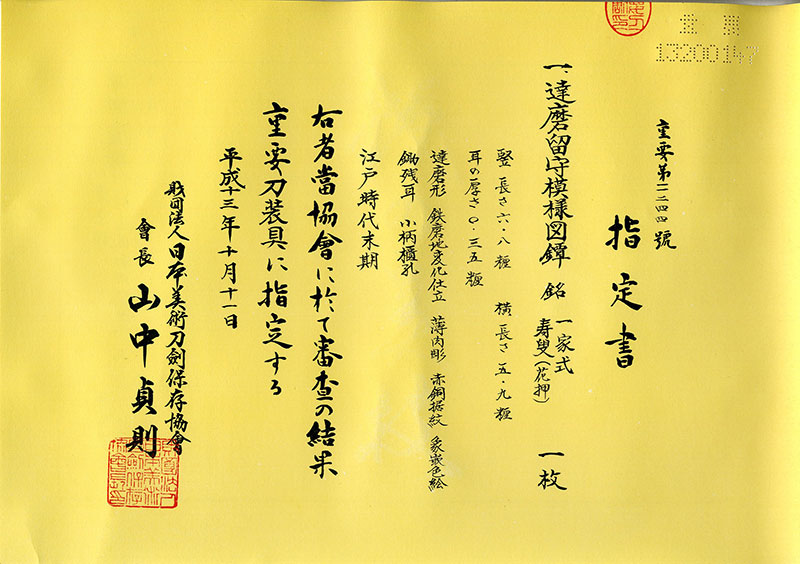 重要
13200147
重要第一二四四號
指定書
一、達磨留守模様図鐔 銘 一家式 寿叟(花押) 一枚
竪 長さ六・八糎 横 長さ五・九糎
耳の厚さ〇・三五糎
達磨形 鉄磨地変化仕立 薄肉彫 赤銅据紋 象嵌色絵
鋤残耳 小柄櫃孔
江戸時代末期
右者當協會に於て審査の結果
重要刀装具に指定する
平成十三年十月十一日
財団法人日本美術刀劍保存協會
會長 山中貞則